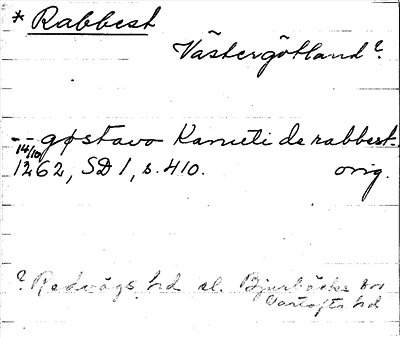 * Rabbest
Västergötland?
-- gøstavo Karueti de rabbest.
14/10 1262, SD 1, s. 410. orig.
? Redvägs hd el. Bjurbäcks sn
Vartofta hd